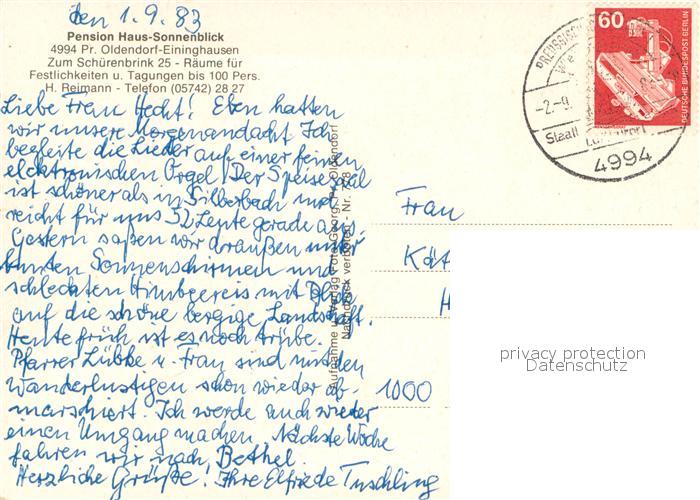 den 1.9.83
Pension Haus-Sonnenblick
4994 Pr. Oldendorf-Eininghausen
Zum Schürenbrink 25 - Räume für
Festlichkeiten u. Tagungen bis 100 Pers.
H. Reimann - Telefon (05742) 28 27
Liebe Frau Hecht! Eben hatten
wir unsere Morgenandacht. Ich
begleite die Lieder auf einer feinen
elektronischen Orgel. Der Speisesaal
ist schöner als in Silberbach und
reicht für uns 52 Leute gerade aus.
Gestern saßen wir draußen unter
bunten Sonnenschirmen und
schleckten Himbeereis mit Blick
auf die schöne bergige Landschaft.
Heute früh ist es noch trübe.
Pfarrer Lübke u. Frau sind mit den
Wanderlustigen schon wieder ab-
marschiert. Ich werde auch wieder
einen Umgang machen. Nächste Woche
fahren wir nach Bethel.
Herzliche Grüße! Ihre Elfriede Tuschling
Aufnahme u. Verlag Foto-Georg, Pr. Oldendorf
Nachdruck verboten - Nr.
60
DEUTSCHE BUNDESPOST BERLIN
PREUSSISCH
-2.-9.
Staatl
Luftkurort
4994
Frau
Kät
H
1000
privacy protection
Datenschutz